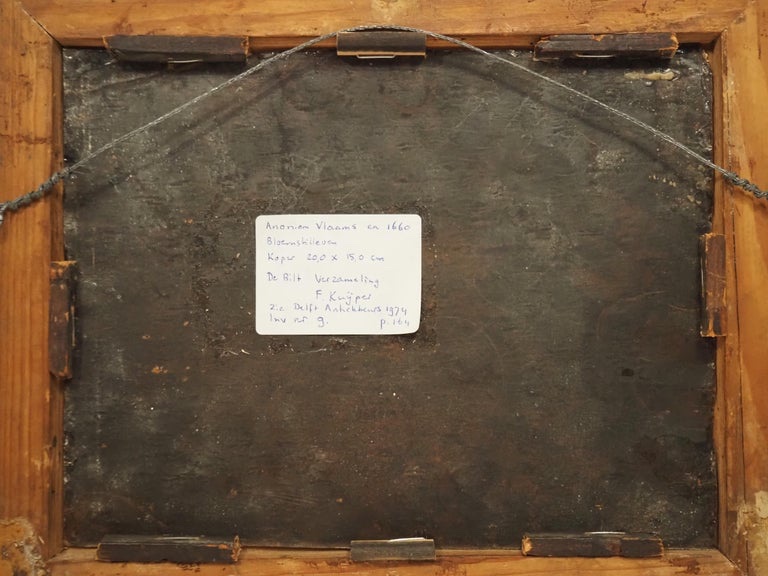 Anoniem Vlaams ca 1660
Bloemstilleven
Koper 20,0 x 15,0 cm
De Bilt Verzameling
F. Kuÿper
Zie Delft Antiekbeurs 1974
Inv nr 9. p. 164